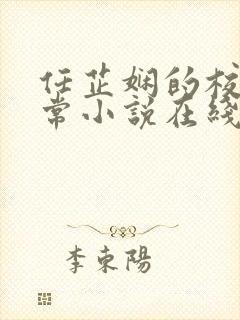 任芷娴的校
常小说在线
李東陽